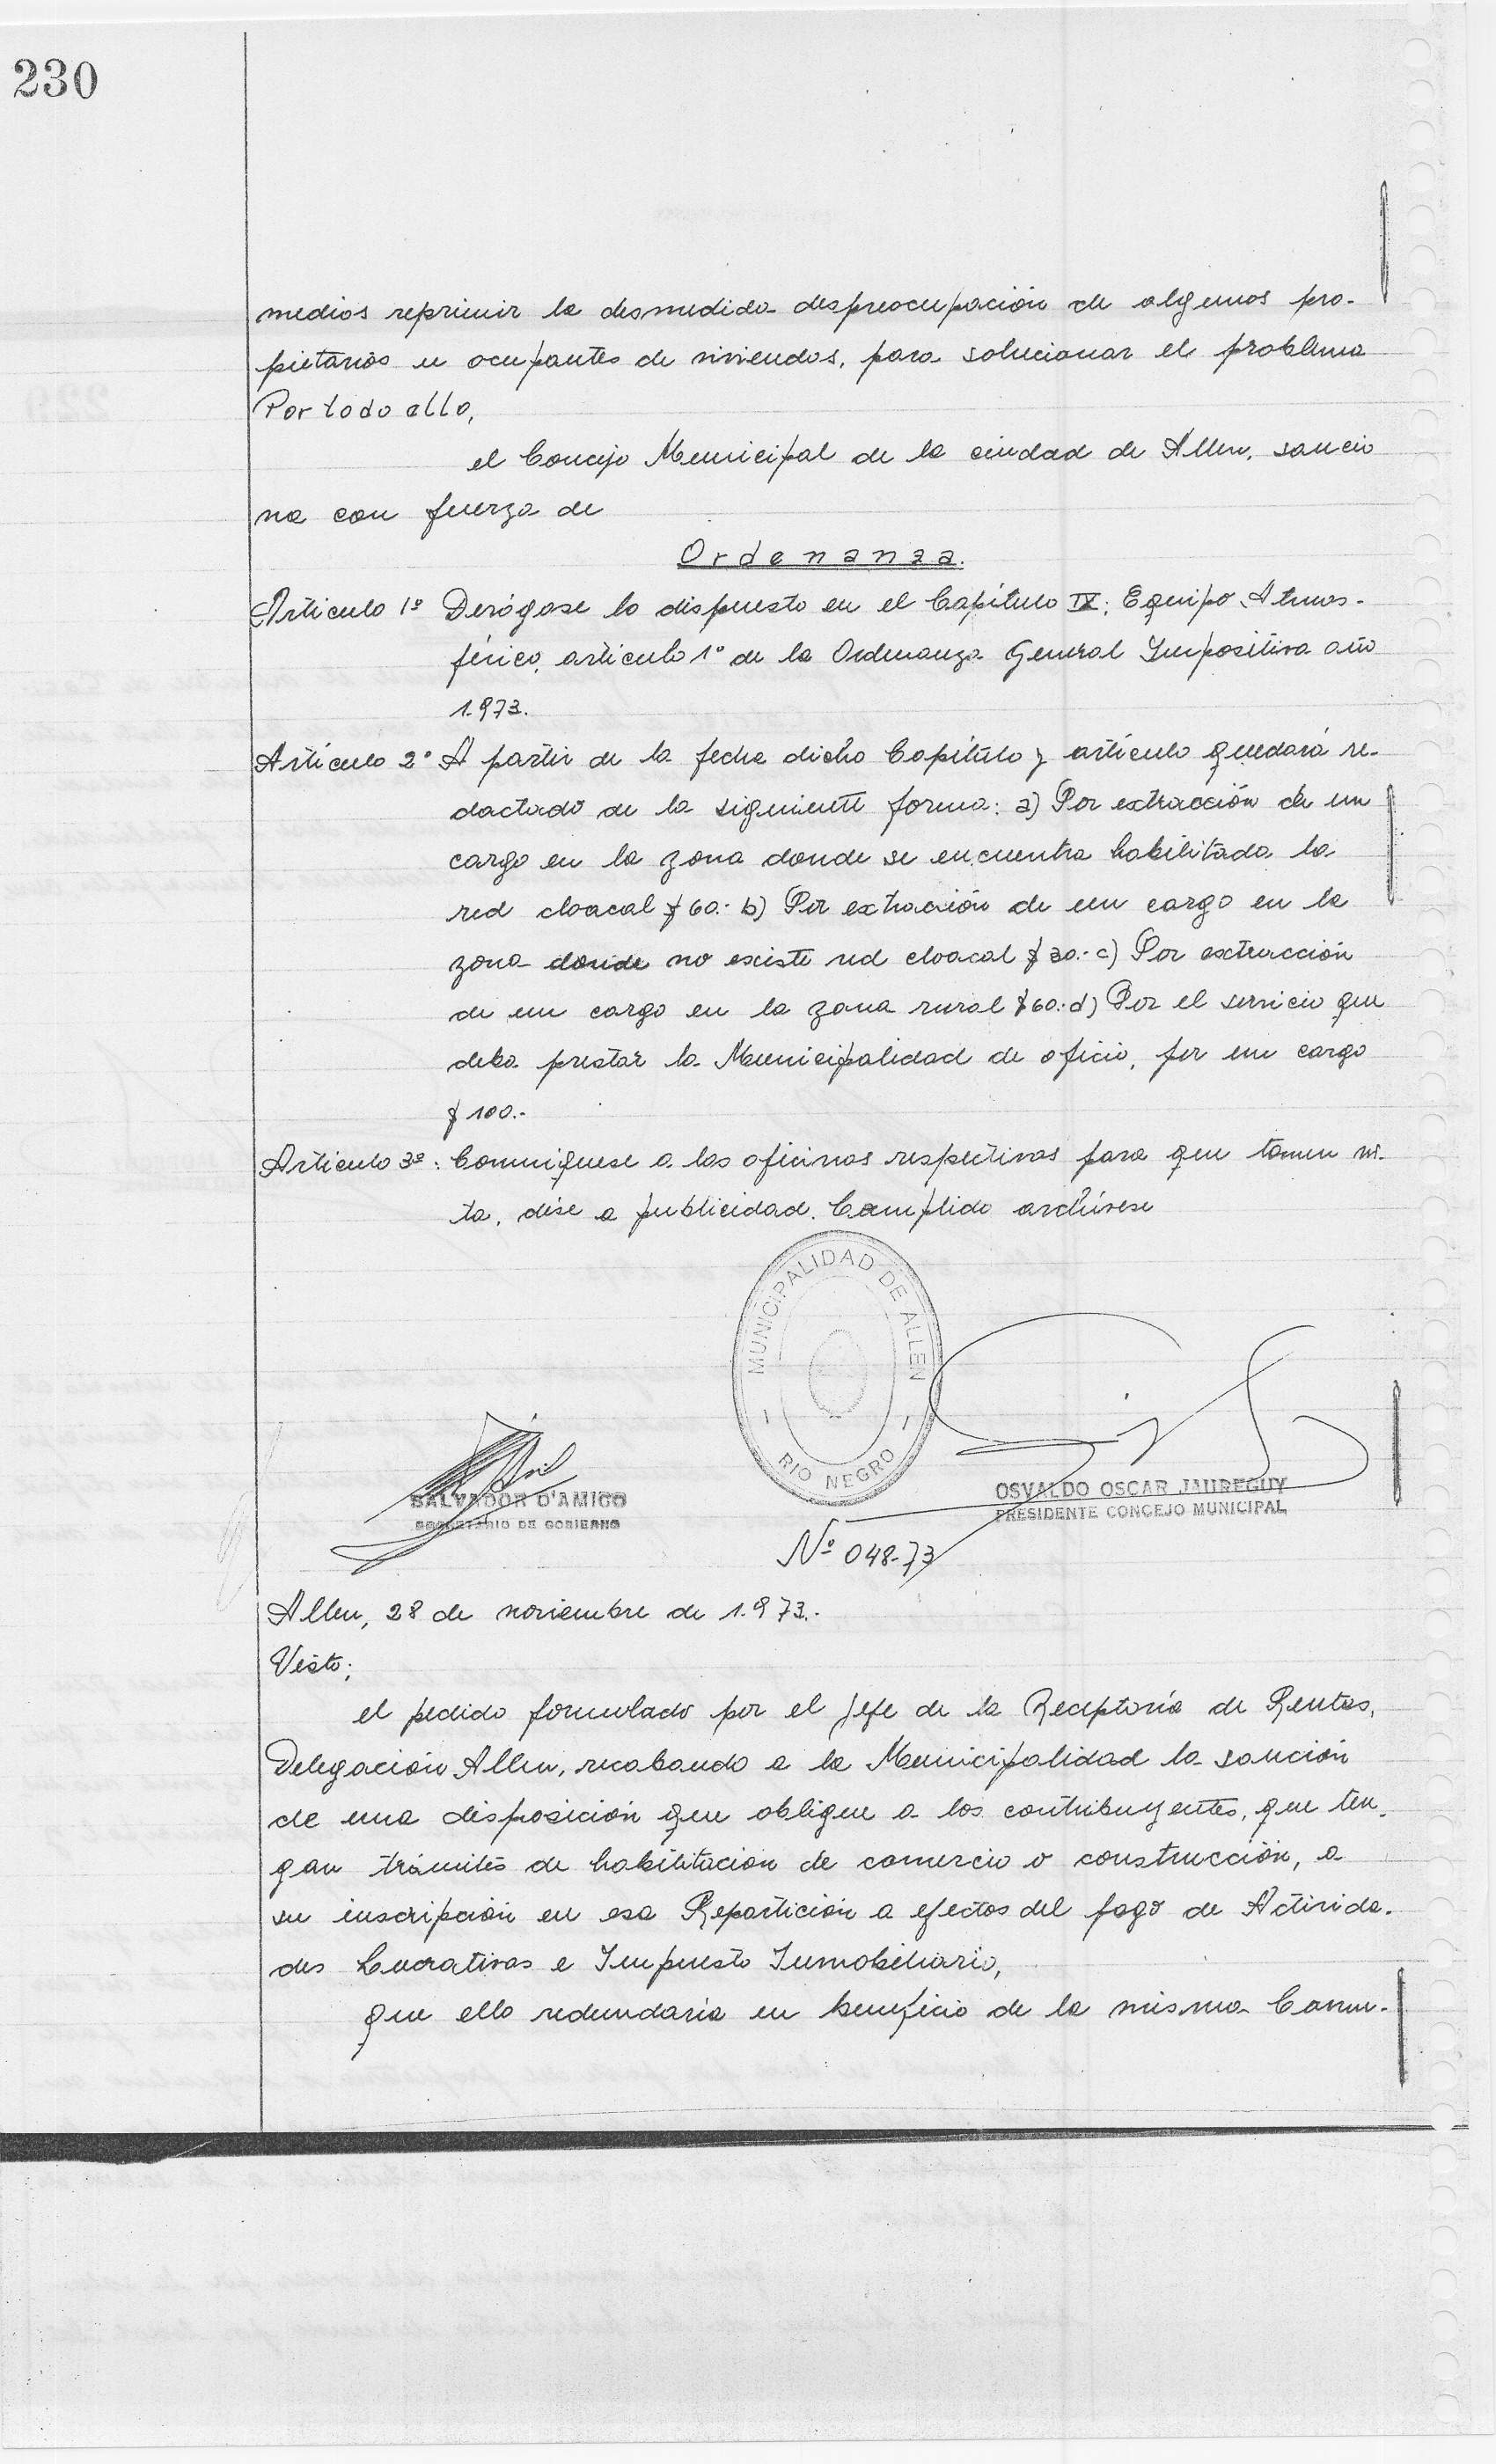 230
medios reprimir la desmedida despreocupación de algunos pro-
pietarios u ocupantes de viviendas, para solucionar el problema
Por todo ello,
el Concejo Municipal de la ciudad de Allen, sancio
na con fuerza de
Ordenanza.
Artículo 1º Derógase lo dispuesto en el Capítulo IX; Equipo Atmos-
férico, artículo 1º de la Ordenanza General Impositiva año
1.973.
Artículo 2º A partir de la fecha dicho Capítulo y artículo quedará re-
dactado de la siguiente forma: a) Por extracción de un
cargo en la zona donde se encuentra habilitada la
red cloacal $ 60.- b) Por extracción de un cargo en la
zona donde no existe red cloacal $ 30.- c) Por extracción
de un cargo en la zona rural $ 60.- d) Por el servicio que
deba prestar la Municipalidad de oficio, por un cargo
$ 100.-
Artículo 3º: Comuníquese a las oficinas respectivas para que tomen vis-
ta, dése a publicidad. Cumplido archívese
MUNICIPALIDAD DE ALLEN
- RIO NEGRO -
SALVADOR D'AMICO
SECRETARIO DE GOBIERNO
OSVALDO OSCAR JAUREGUY
PRESIDENTE CONCEJO MUNICIPAL
Nº 048-73
Allen, 28 de noviembre de 1.973.-
Visto;
el pedido formulado por el Jefe de la Receptoría de Rentas,
Delegación Allen, recabando a la Municipalidad la sanción
de una disposición que obligue a los contribuyentes, que ten-
gan trámites de habilitación de comercio o construcción, a
su inscripción en esa Repartición a efectos del pago de Activida-
des Lucrativas e Impuesto Inmobiliario,
que ello redundaría en beneficio de la misma Comu-